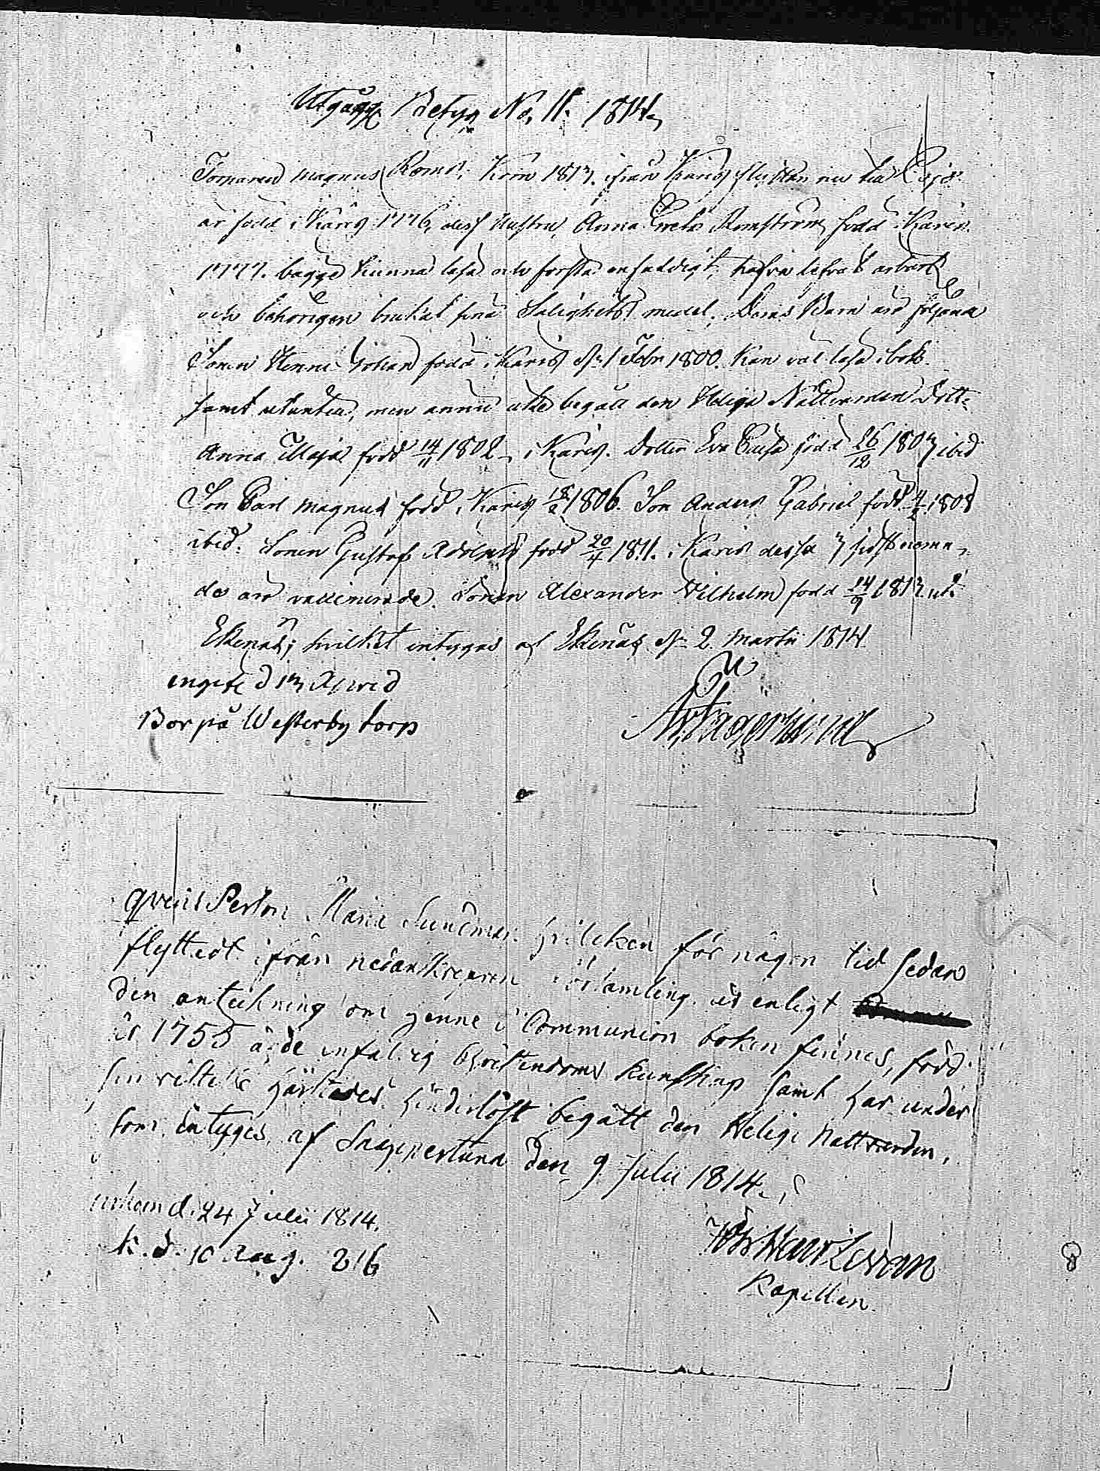 Utgångs Betyg No, 11. 1814.
Torparen Magnus Roms, kom 1813. ifrån Karis flyttar nu till
är född i Karis 1776, dess Hustru Anna Greta Romström född i Karis
1777. bägge kunna läsa och förstå enfaldigt, hafva lefvat ärbart
och behörigen brukat sina Salighets medel. Deras Barn äro följande
Sonen Henric Johan född i Karis d. 1 Febr 1800. kan väl läsa i bok
samt utantill, men ännu icke begått den Heliga Nattvarden Dott:
Anna Maja född 14/11 1802 i Karis. Dottren Eva född 26/12 1803 ibid
Son Carl Magnus född i Karis 18/2 1806. Son Anders Gabriel född 4/2 1808
ibid. Sonen Gustaf Adolph född 20/4 1811. i Karis dessa 3 sistbenämn-
de äro vaccinerade. Sonen Alexander Vilhelm född 14/9 1813 uti
Ekenäs; hvilket intygas af Ekenäs d. 2 Martii 1814
ingifv. d 13 April
Bor på Westerby torp
qvins Person Maria hvilcken för någon tid sedan
flyttadt ifrån nedanskrefven församling är enligt
den anteckning om henne i Communion boken finnes, född
år 1755 ägde enfaldig Christendoms kunskap samt har under
sin vistelse härstädes hinderlöst begått den Heliga Nattvarden,
som intygas af Snappertuna den 9 Julii 1814.
inkom d. 24 Julii 1814.
k. d. 10 Aug. 816
Kapellan